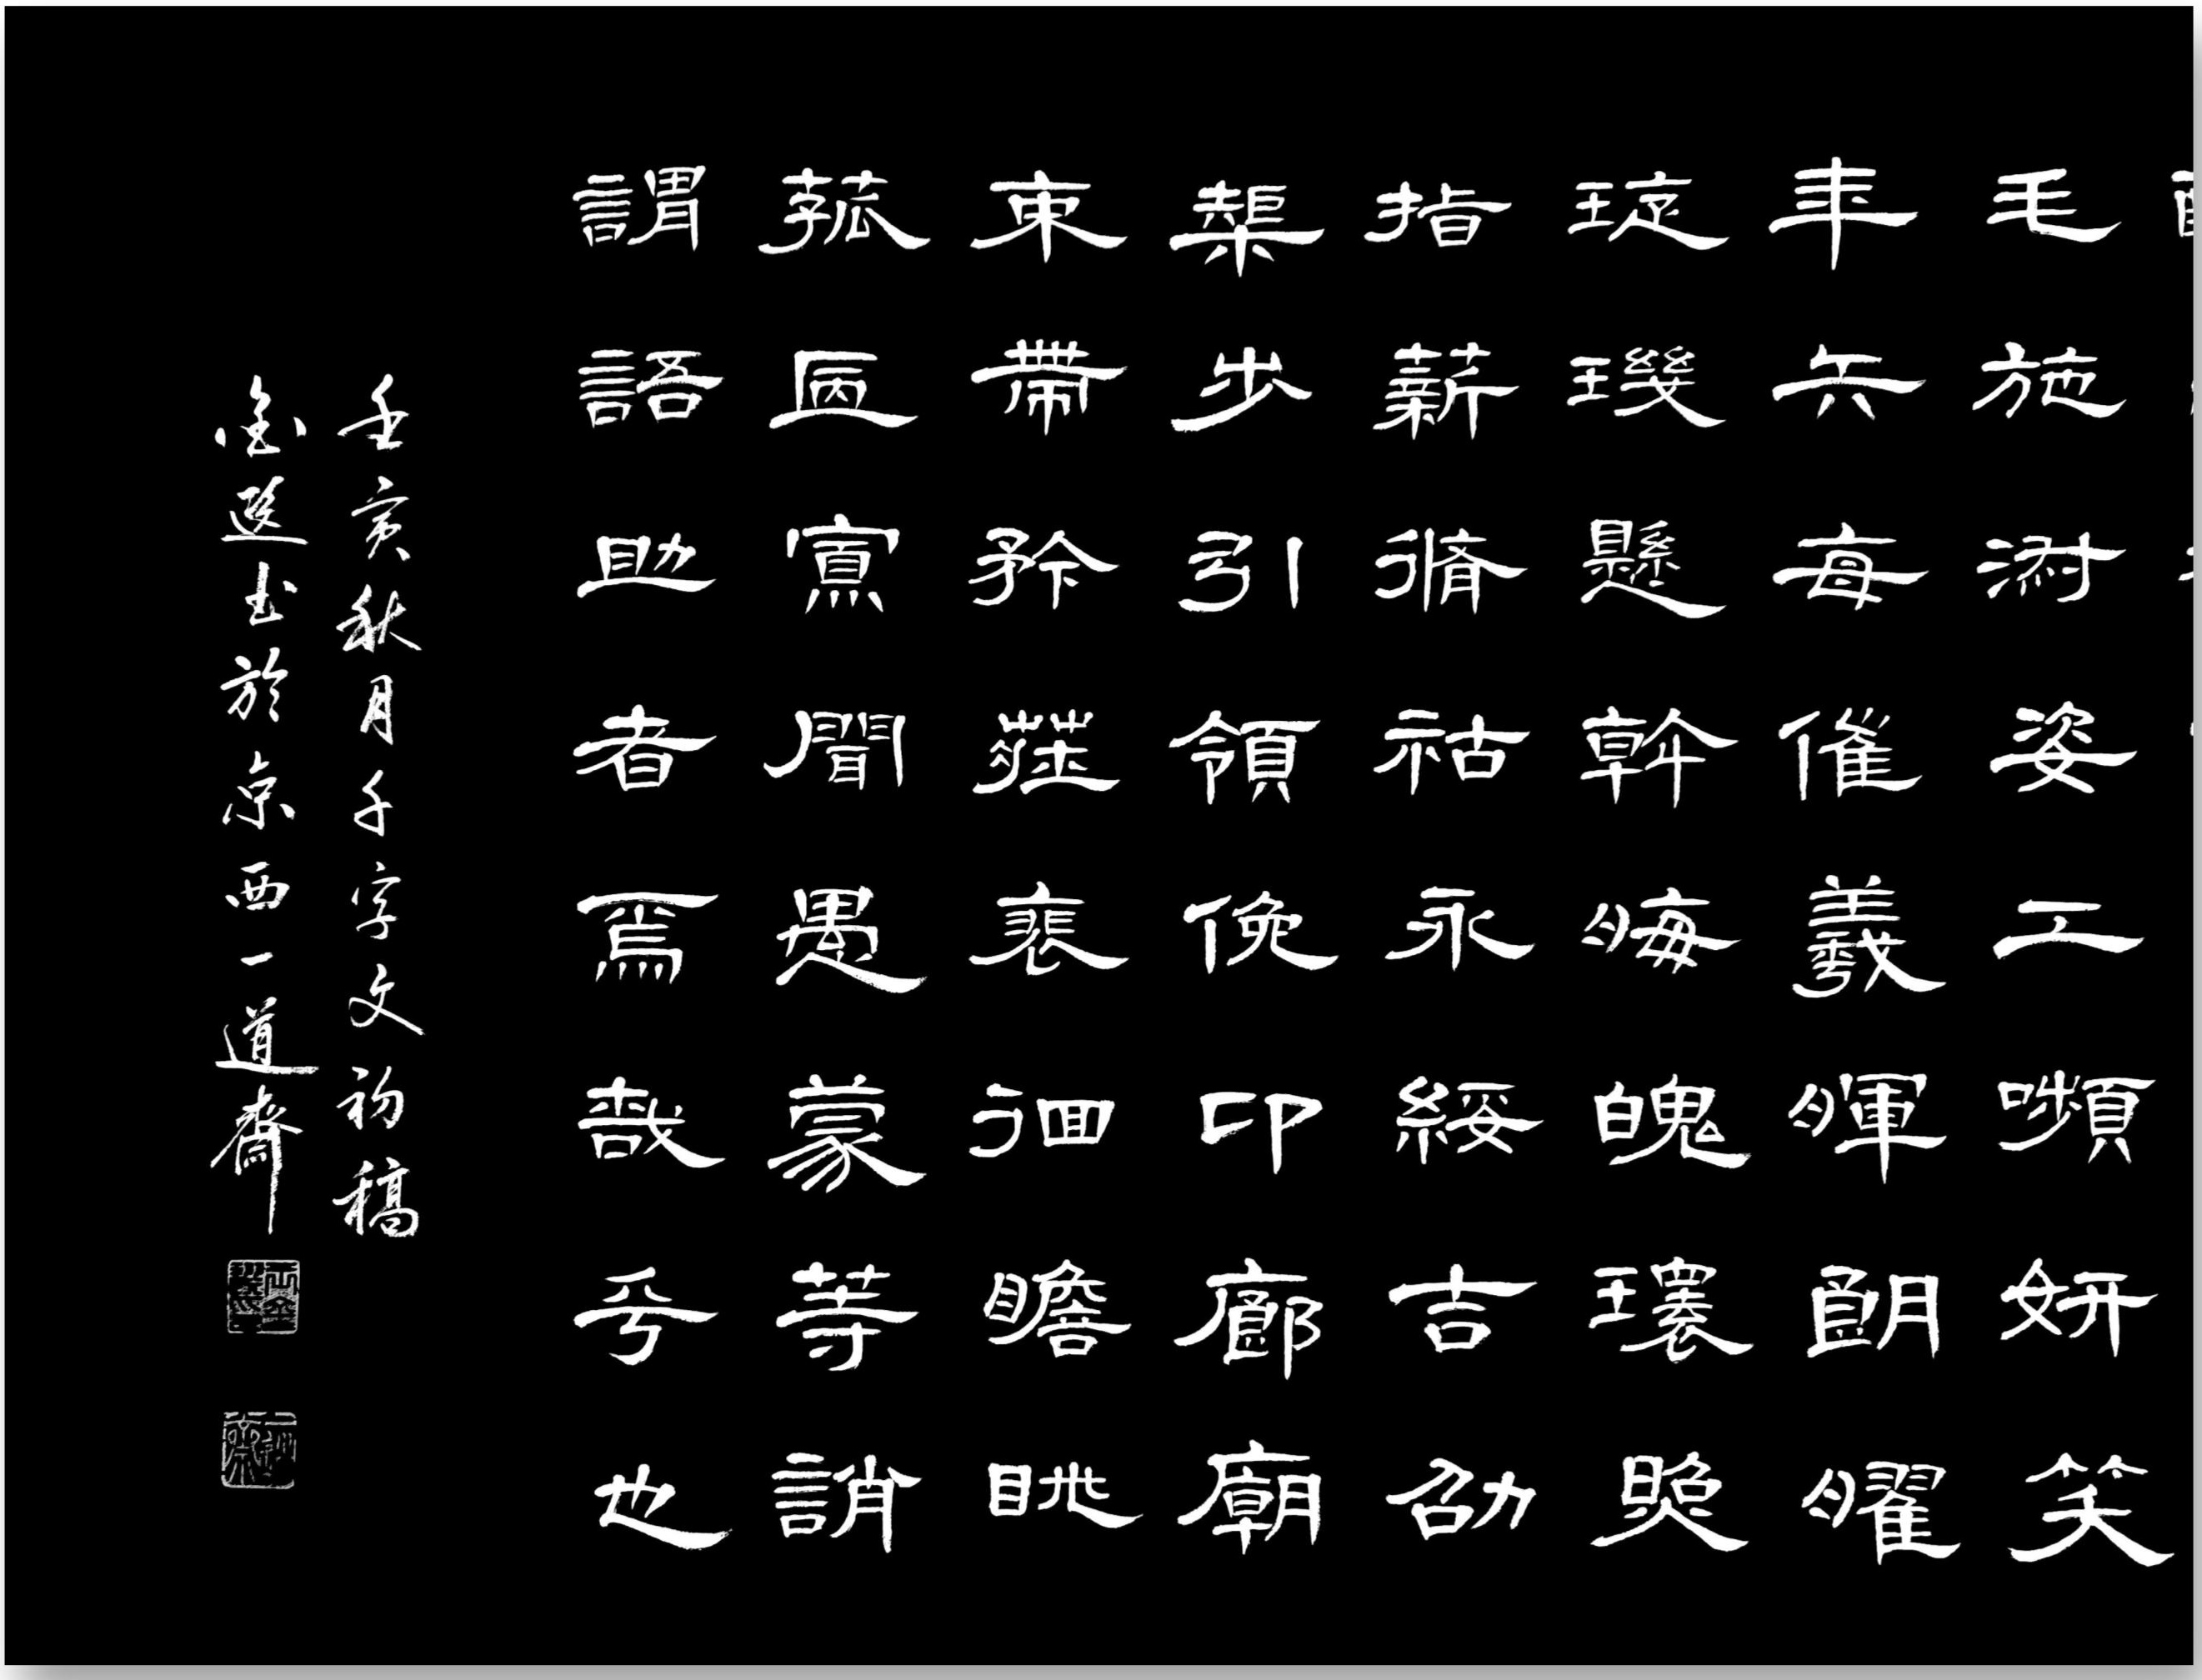 毛施淑姿工嚬妍笑
年矢每催羲暉朗曜
琁璣懸斡晦魄環照
指薪脩祜永綏吉劭
榘步引領俛卬廊廟
束帶矜莊裴徊瞻眺
孤陋寡聞愚蒙等誚
謂語助者焉哉乎也
壬寅秋月千字文初稿
金书於京西一道齋